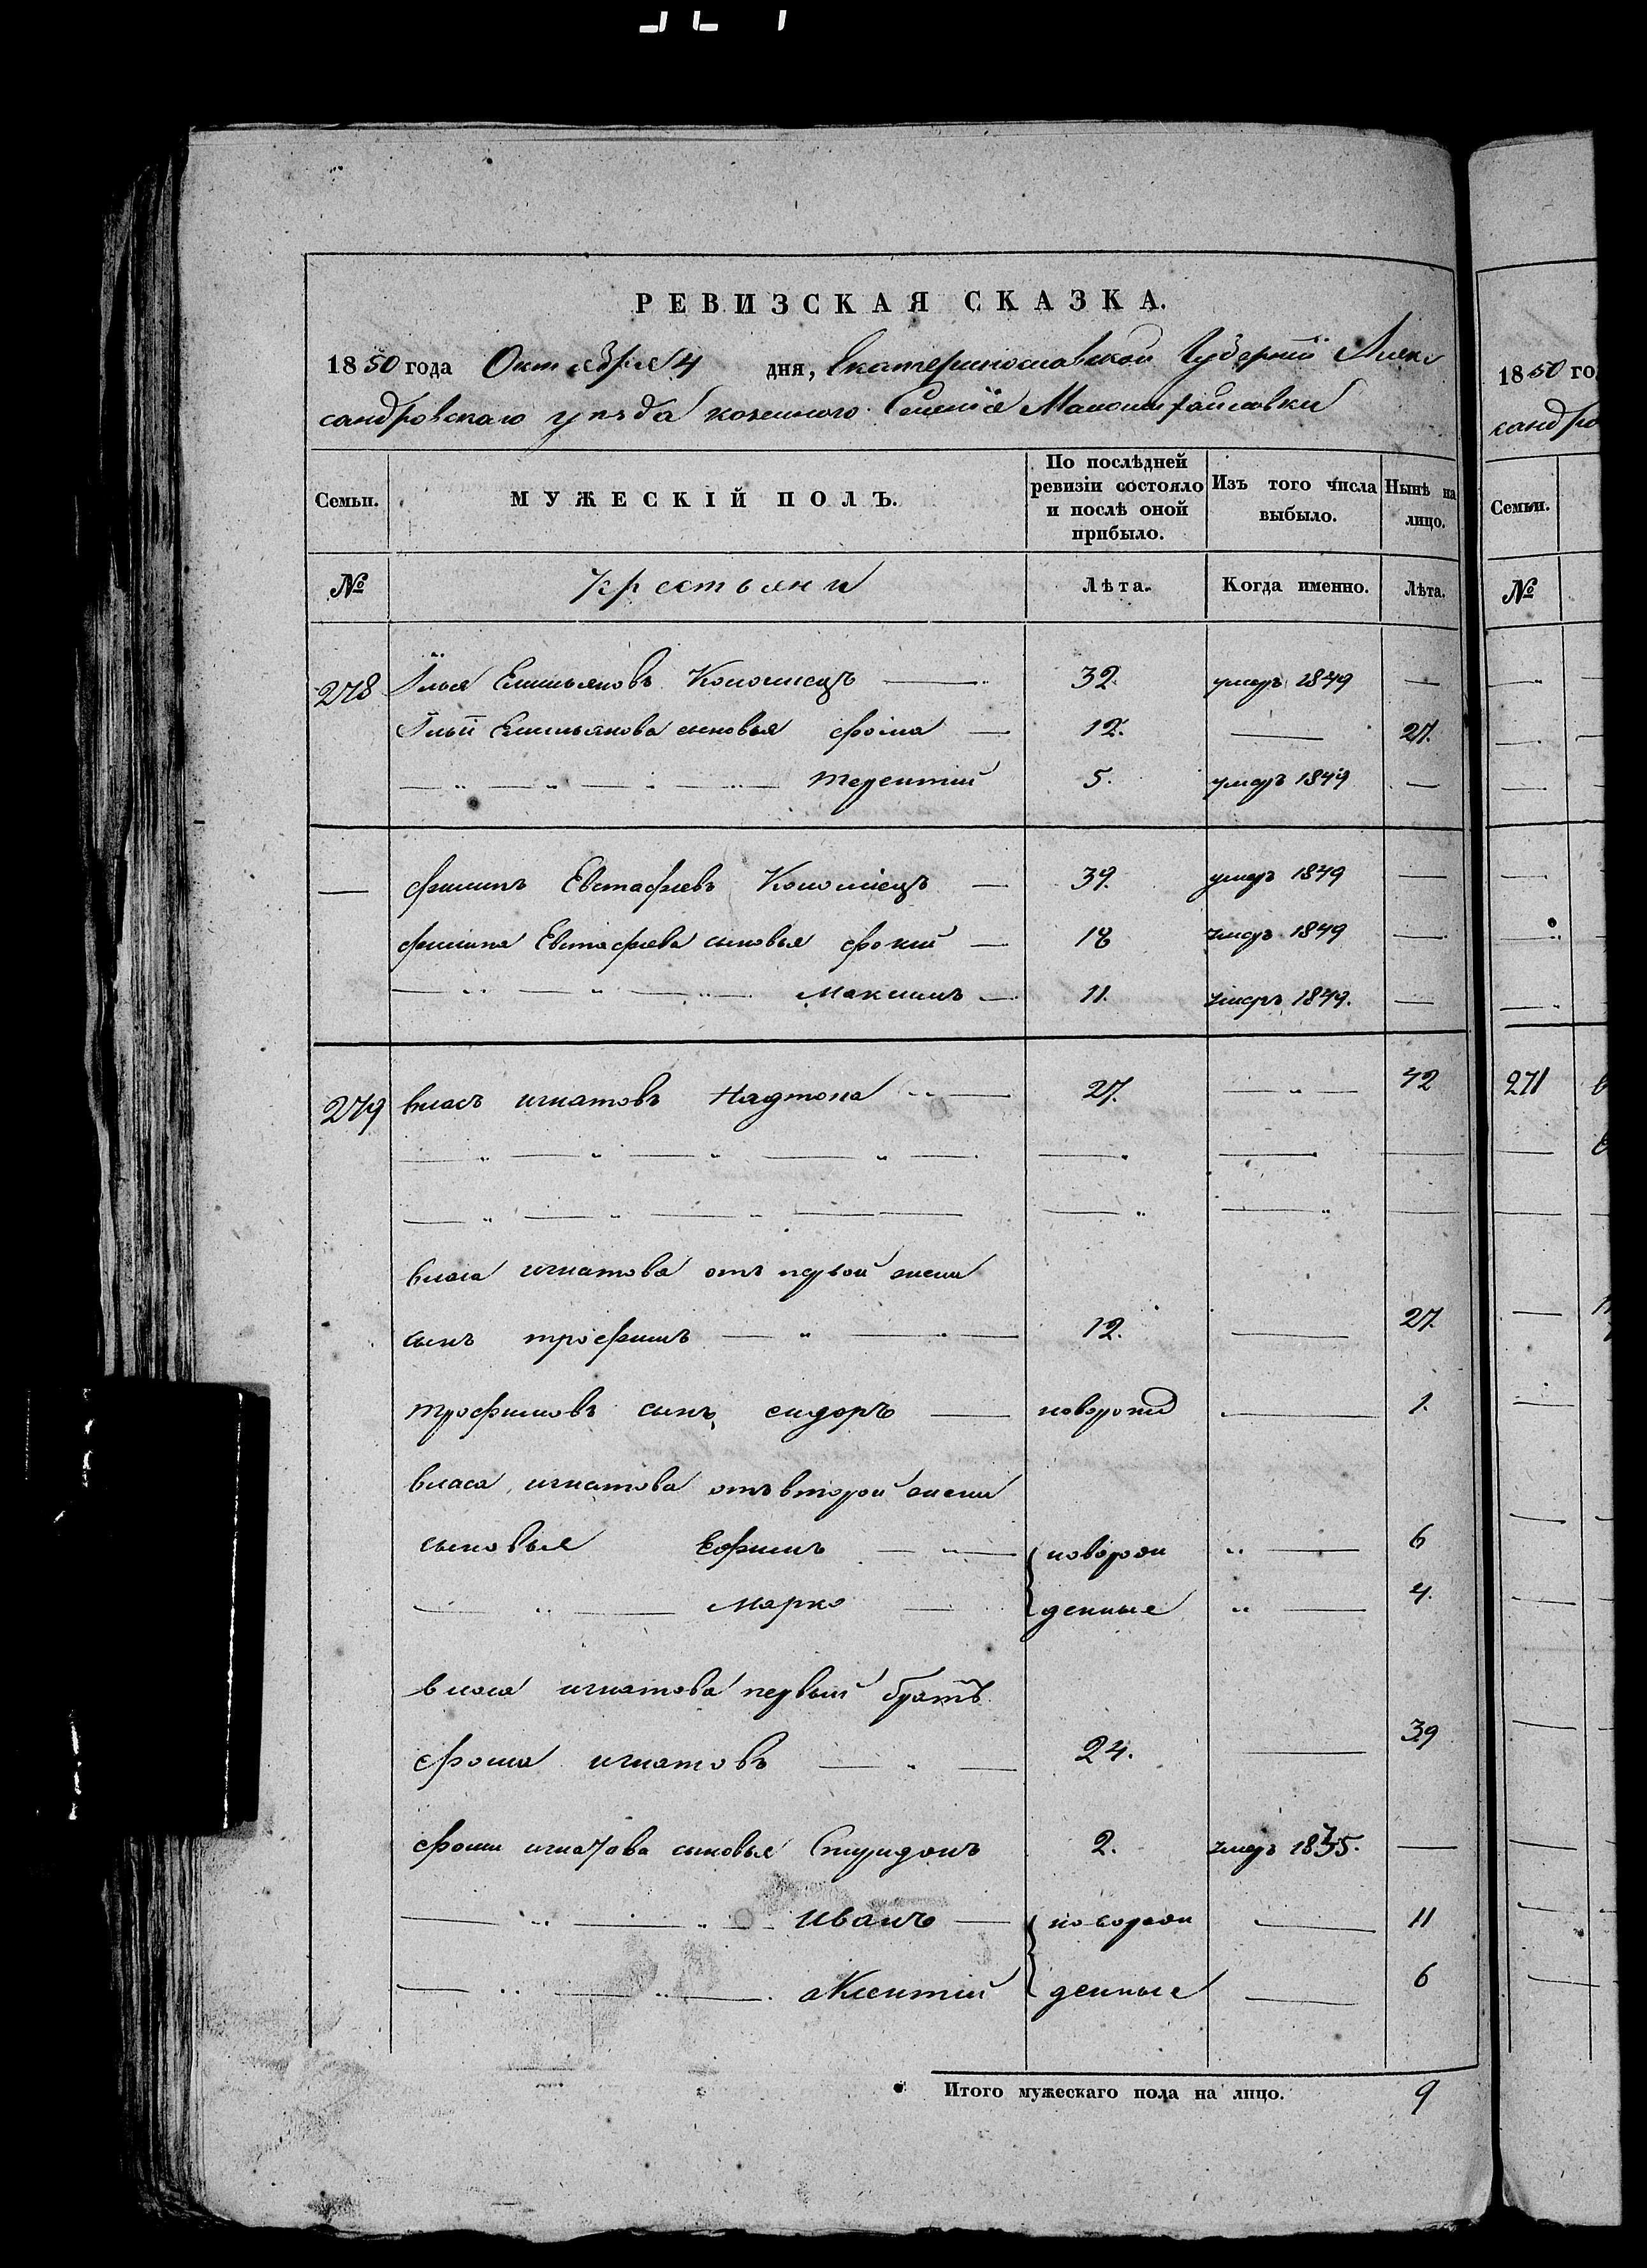 РЕВИЗСКАЯ СКАЗКА.
1850 года Октября 4 дня, Екатеринославской Губерніи Алек
сандровскаго уѣзда казенного Селенія Маломихайловки
Семьи. МУЖЕСКІЙ ПОЛЪ. По послѣдней ревизіи состояло и послѣ оной прибыло. Изъ того числа выбыло. Нынѣ на лицо.
№ Крестьяни Лѣта. Когда именно. Лѣта.
278 Илья Емильяновъ Коломиецъ 32. умеръ 1849 —
Ильи Емильянова сыновья Фома 12. — 27.
Терентий 5. умеръ 1849 —
— Филипъ Евстафиевъ Коломиецъ 39. умеръ 1849 —
Филипа Евстафиева сыновья Фокий 18 умеръ 1849 —
Максимъ 11. умеръ 1849. —
279 Власъ игнатовъ Надтока 27. — 42
Власа игнатова отъ первой жени
сынъ трофимъ 12. — 27.
трофимовъ сынъ сидоръ новорожд — 1.
власа игнатова отъ второй жени
сыновья Ефимъ новорож 6
Марко денные 4.
власа игнатова первый братъ
Фома игнатовъ 24. — 39
Фоми игнатова сыновья Спиридонъ 2. умеръ 1835. —
иванъ новорож — 11
авксентий денные — 6
Итого мужескаго пола на лицо. 9
1850 го
сандро
Семьи.
№
271